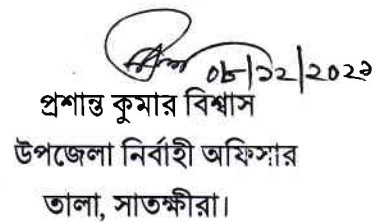 ০৮/১২/২০২২
প্রশান্ত কুমার বিশ্বাস
উপজেলা নির্বাহী অফিসার
তালা, সাতক্ষীরা।